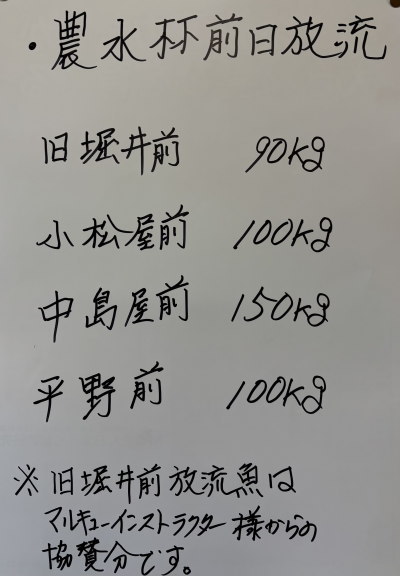 ・農水杯前日放流
旧堀井前 90kg
小松屋前 100kg
中島屋前 150kg
平野前 100kg
※旧堀井前放流魚は
マルキューインストラクター様からの
協賛分です。